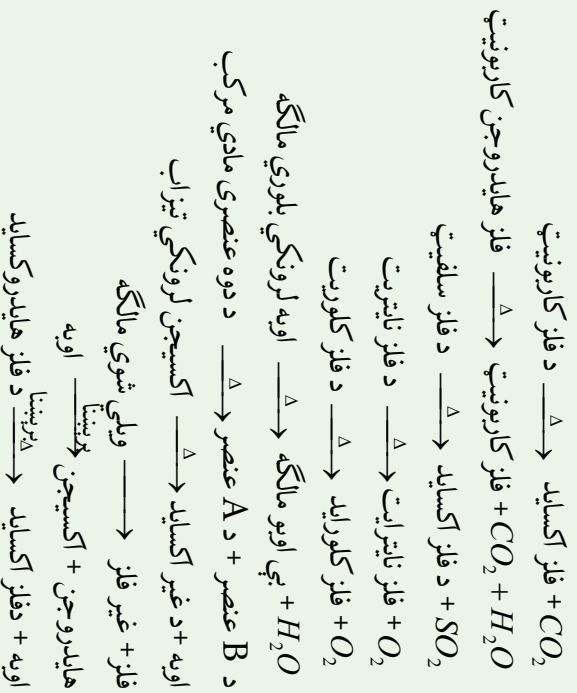 د فلز کاربونیټ —Δ→ فلز اکساید + CO₂
فلز هایدروجن کاربونیټ —Δ→ فلز کاربونیټ + CO₂ + H₂O
د فلز سلفیټ —Δ→ د فلز اکساید + SO₂
د فلز نایتریت —Δ→ فلز نایترایت + O₂
د فلز کلوریت —Δ→ فلز کلوراید + O₂
اوبه لرونکي بلوري مالګه —Δ→ بې اوبو مالګه + H₂O
د دوه عنصری مادي مرکب —Δ→ د A عنصر + د B عنصر
اکسیجن لرونکي تیزاب —Δ→ د غیر اکساید + اوبه
ویلي شوي مالګه —بریښنا→ غیر فلز + فلز
اوبه —بریښنا→ اکسیجن + هایدروجن
د فلز هایدروکساید —Δ→ دفلز اکساید + اوبه